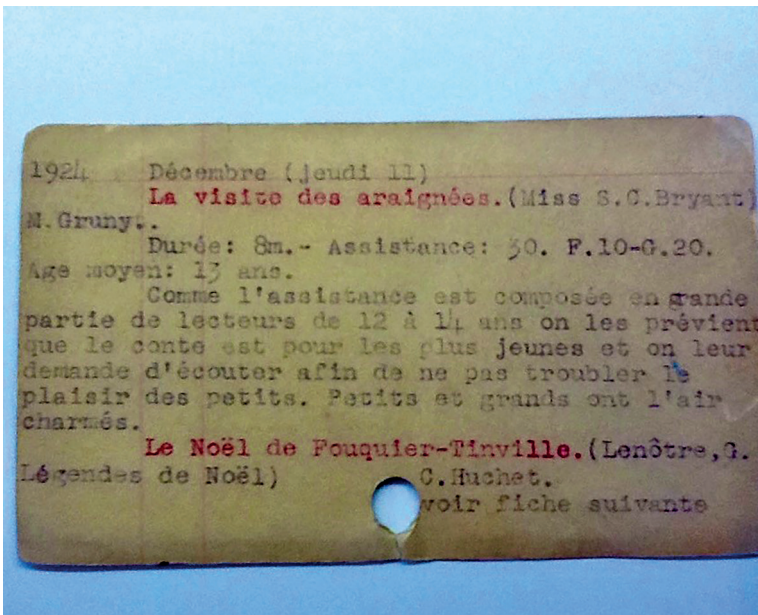 1924 Décembre (jeudi 11)
La visite des araignées.(Miss S.C.Bryant)
M.Gruny..
Durée: 8m.- Assistance: 30. F.10-G.20.
Age moyen: 13 ans.
Comme l'assistance est composée en grande
partie de lecteurs de 12 à 14 ans on les prévient
que le conte est pour les plus jeunes et on leur
demande d'écouter afin de ne pas troubler le
plaisir des petits. Petits et grands ont l'air
charmés.
Le Noël de Fouquier-Tinville.(Lenôtre,G.
Légendes de Noël) C.Huchet.
voir fiche suivante